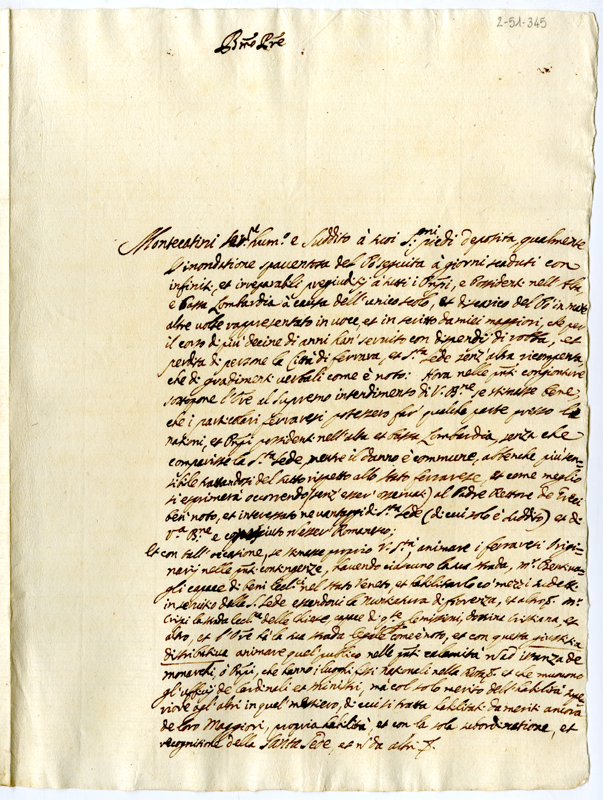 2-51-345
B.mo P.re
Montecatini Ser.re hum.o e Suddito à suoi S.mi piedi deposita qualmente
L'inondatione spaventosa del Pò seguita à giorni scaduti con
infiniti, et irreparabili pregiudizj à tutti i Prpi, e Possidenti nell'Alta,
e Bassa Lombardia à causa dell'unico scolo, et di scarico del Pò in mare
altre volte rappresentato in voce, et in scritto da miei maggiori, che per
il corso di più decine di anni han' servito con dispendij di robba, et
perdita di persone la Città di Ferrara, et S.ta Sede senz'altra ricompensa
che di gradimenti verbali come è noto: Hora nelle p.nti congionture
l'Ore al Supremo intendimento di V. B.ne se stimasse bene,
che i particolari Ferraresi potessero far' qualche parte presso le
nationi, et Prpi possidenti nell'alta et bassa Lombardia, senza che
comparisse la S.ta Sede, mentre il danno è commune, ancorche più sen-
sibile trattandosi del tutto rispetto allo stato ferrarese, et come meglio
si esprimerà occorrendo (senz'esser' osservati) al Padre Rettore de
ben' noto, et interessato ne vantaggi di S.ta Sede (di cui solo è suddito) et di
V.a B.ne e n'esser Romanesco;
Et con tall'occasione, se stimasse proprio V. S.tà, animare i ferraresi
nelle p.nti contingenze, havendo ciascuno la sua strada, M.r Bentivo-
gli capace di beni Eccl.ci nel stato Veneto, et habilitarlo co' mezzi
in servitio della S. Sede essendovi la Nuntiatura di fiorenza, et M.r
Crispi la strada Eccl.ca delle Chiese, capace di Missioni, dottrina Cristiana, et
altro, et l'Ore hà la sua strada legale come è noto, et con questa giustitia
distributiva animare quel publico nelle p.nti calamità n'ad istanza de
monarchi, ò Prpi, che hanno i luoghi fissi nationali nella Rota, et che muovono
gl'ufficij de Cardinali et Ministri, mà col solo merito dell'habilità supe-
riore agl'altri in quel mestiero, di cui si tratta habilitati da meriti ancora
de loro Maggiori, propria habilità, et con la sola subordinatione, et
recognitione della Santa Sede, et n' da altri